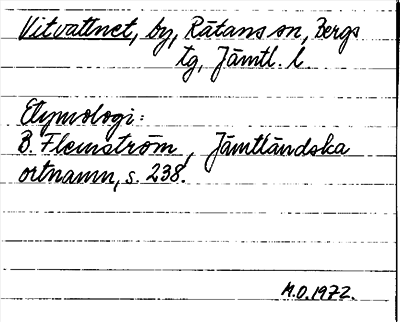 Vitvattnet, by, Rätans sn, Bergs
tg, Jämtl. l.
Etymologi:
B. Flemström, Jämtländska
ortnamn, s. 238.
M.O. 1972.